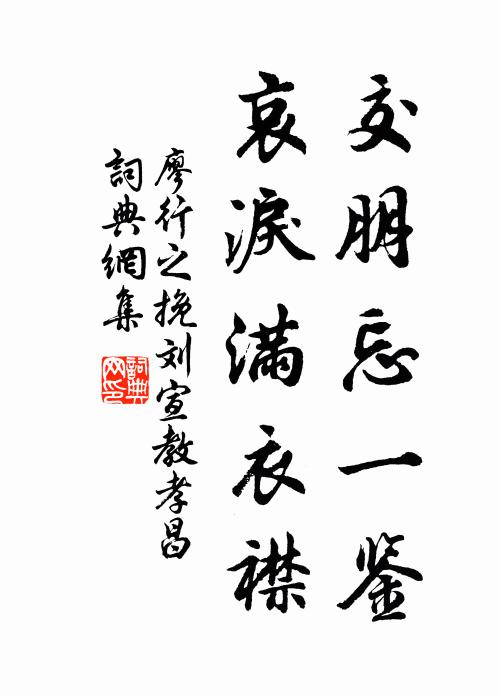 交朋忘一鉴
哀淚滿衣襟
廖行之挽刘宣教孝昌
詞典網集
詞典网印